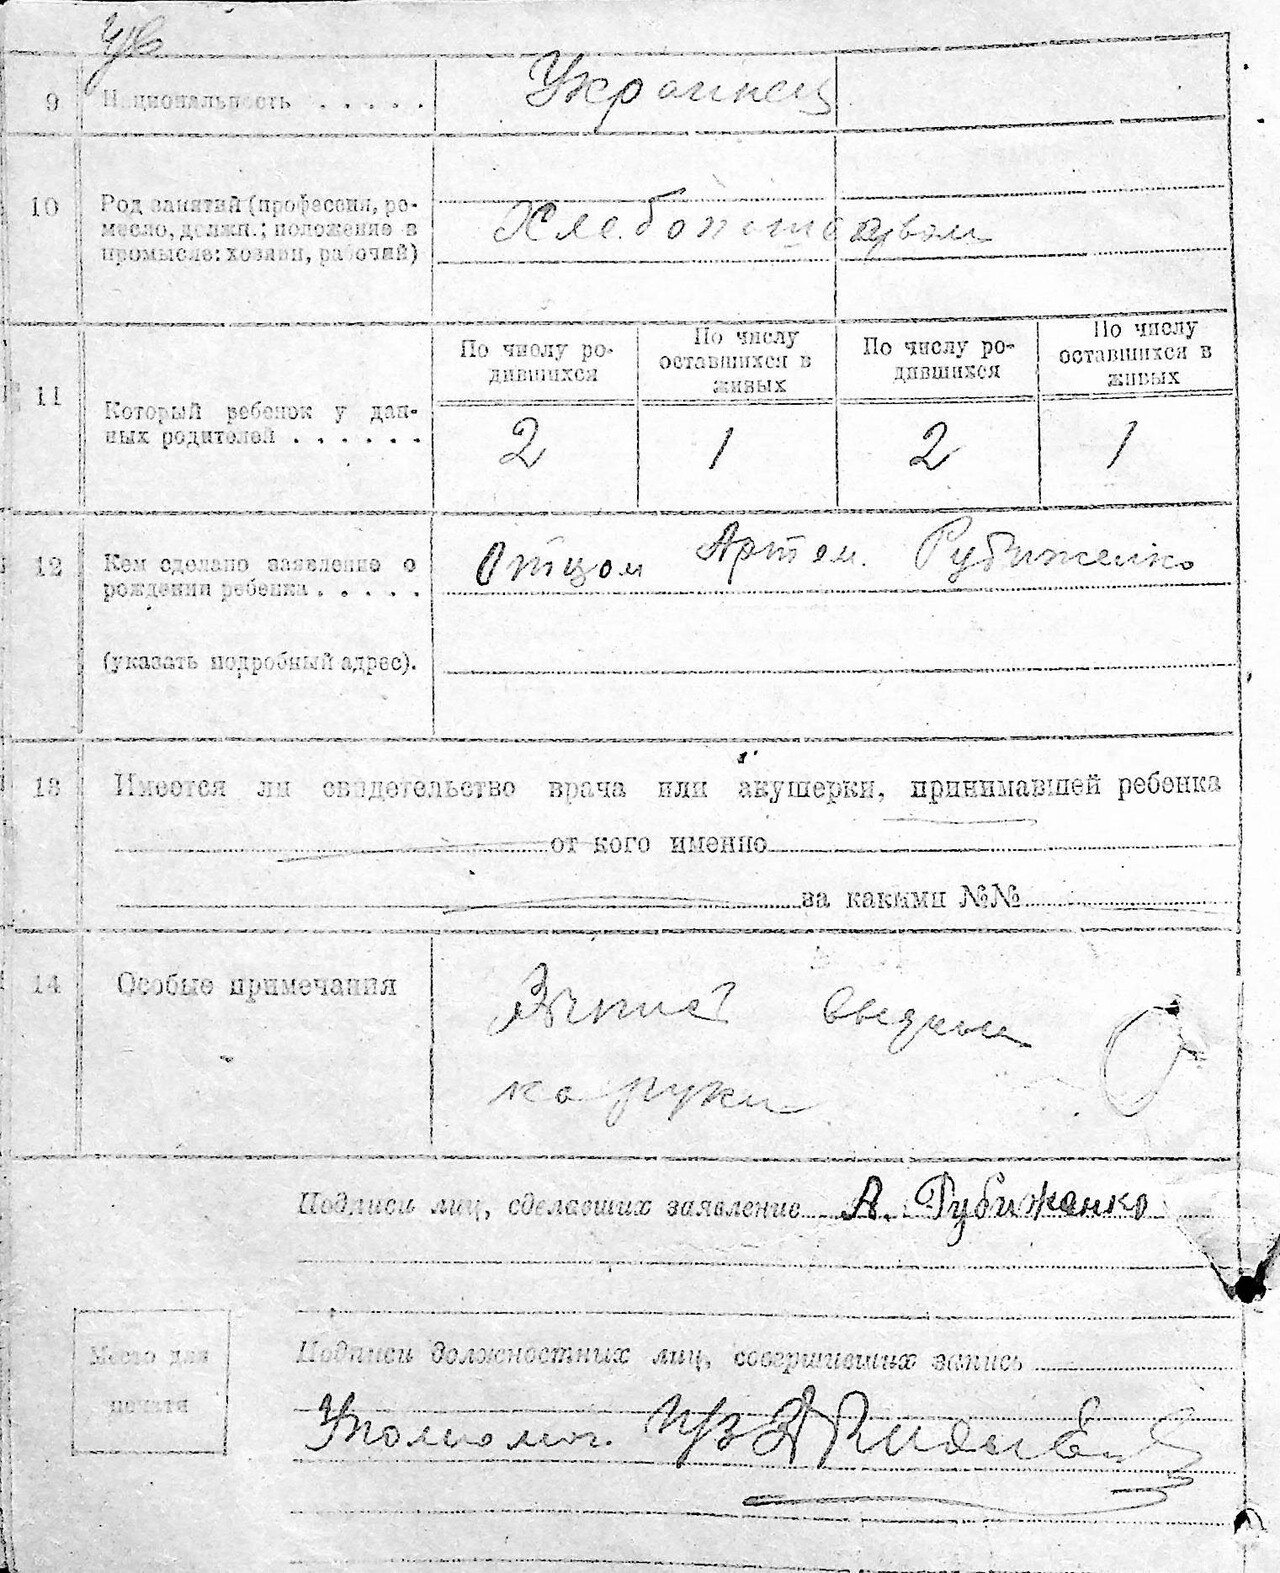 9 Национальность . . . . . Украинец
10 Род занятий (профессия, ре-
месло, должн.; положение в
промысле: хозяин, рабочий)
Хлебопашеством
11 Который ребенок у дан-
ных родителей . . . . . .
По числу ро-
дившихся
По числу
оставшихся в
живых
По числу ро-
дившихся
По числу
оставшихся в
живых
2 1 2 1
12 Кем сделано заявление о
рождении ребенка . . . . .
(указать подробный адрес).
Отцом Артем. Рубиженко
13 Имеется ли свидетельство врача или акушерки, принимавшей ребенка
от кого именно
за какими №№
14 Особые примечания
на руки
Подписи лиц, сделавших заявление А. Рубижанко
Место для
печати
Подписи должностных лиц, совершивших запись
Уполномоч.